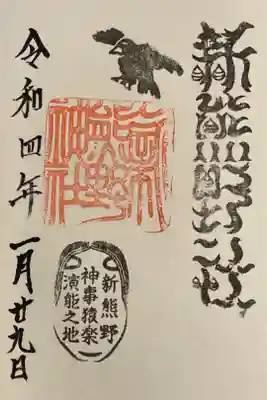 新熊野神社
新熊野神社
新熊野
神事猿楽
演能之地
令和四年 一月廿九日